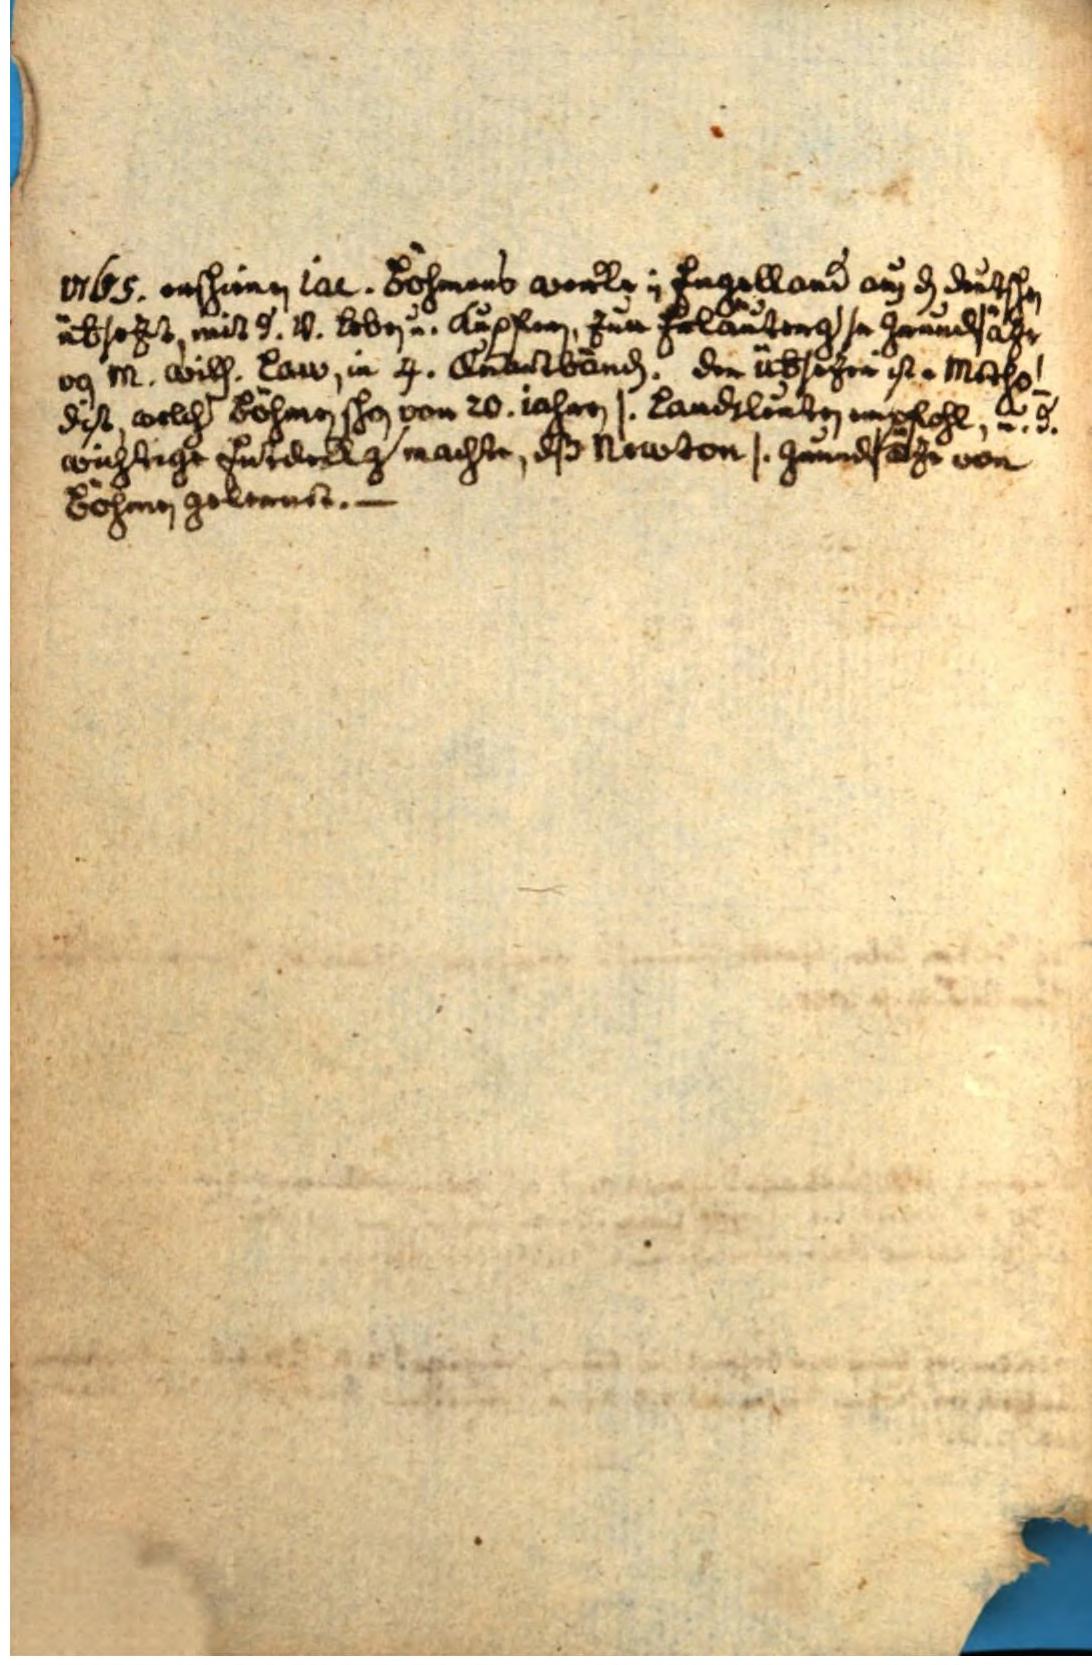 1765. erschienen Iac. Böhmens werke in Engelland aus d deutschen
übsezt, mit s. V. leben u. Kupfern, zur Erläuterg sr grundsäze
von M. Wilh. Law, in 4. Quartbänd. der übsezer ist e Metho-
dist, welch Böhmen schon vor 20. iahren s. Landsleuten empfohl, u. d.
wichtige Entdeckg machte, dß Newton s. grundsäze von
Böhmen gelernet. —